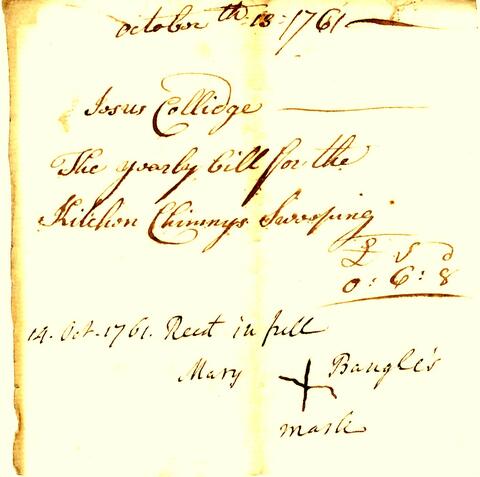 october th 13: 1761
Jesus Collidge
The yearly bill for the
Kitchen Chimnys Sweeping
£ s d
0: 6: 8
14. Oct. 1761. Recd in full
Mary Bangle's
mark